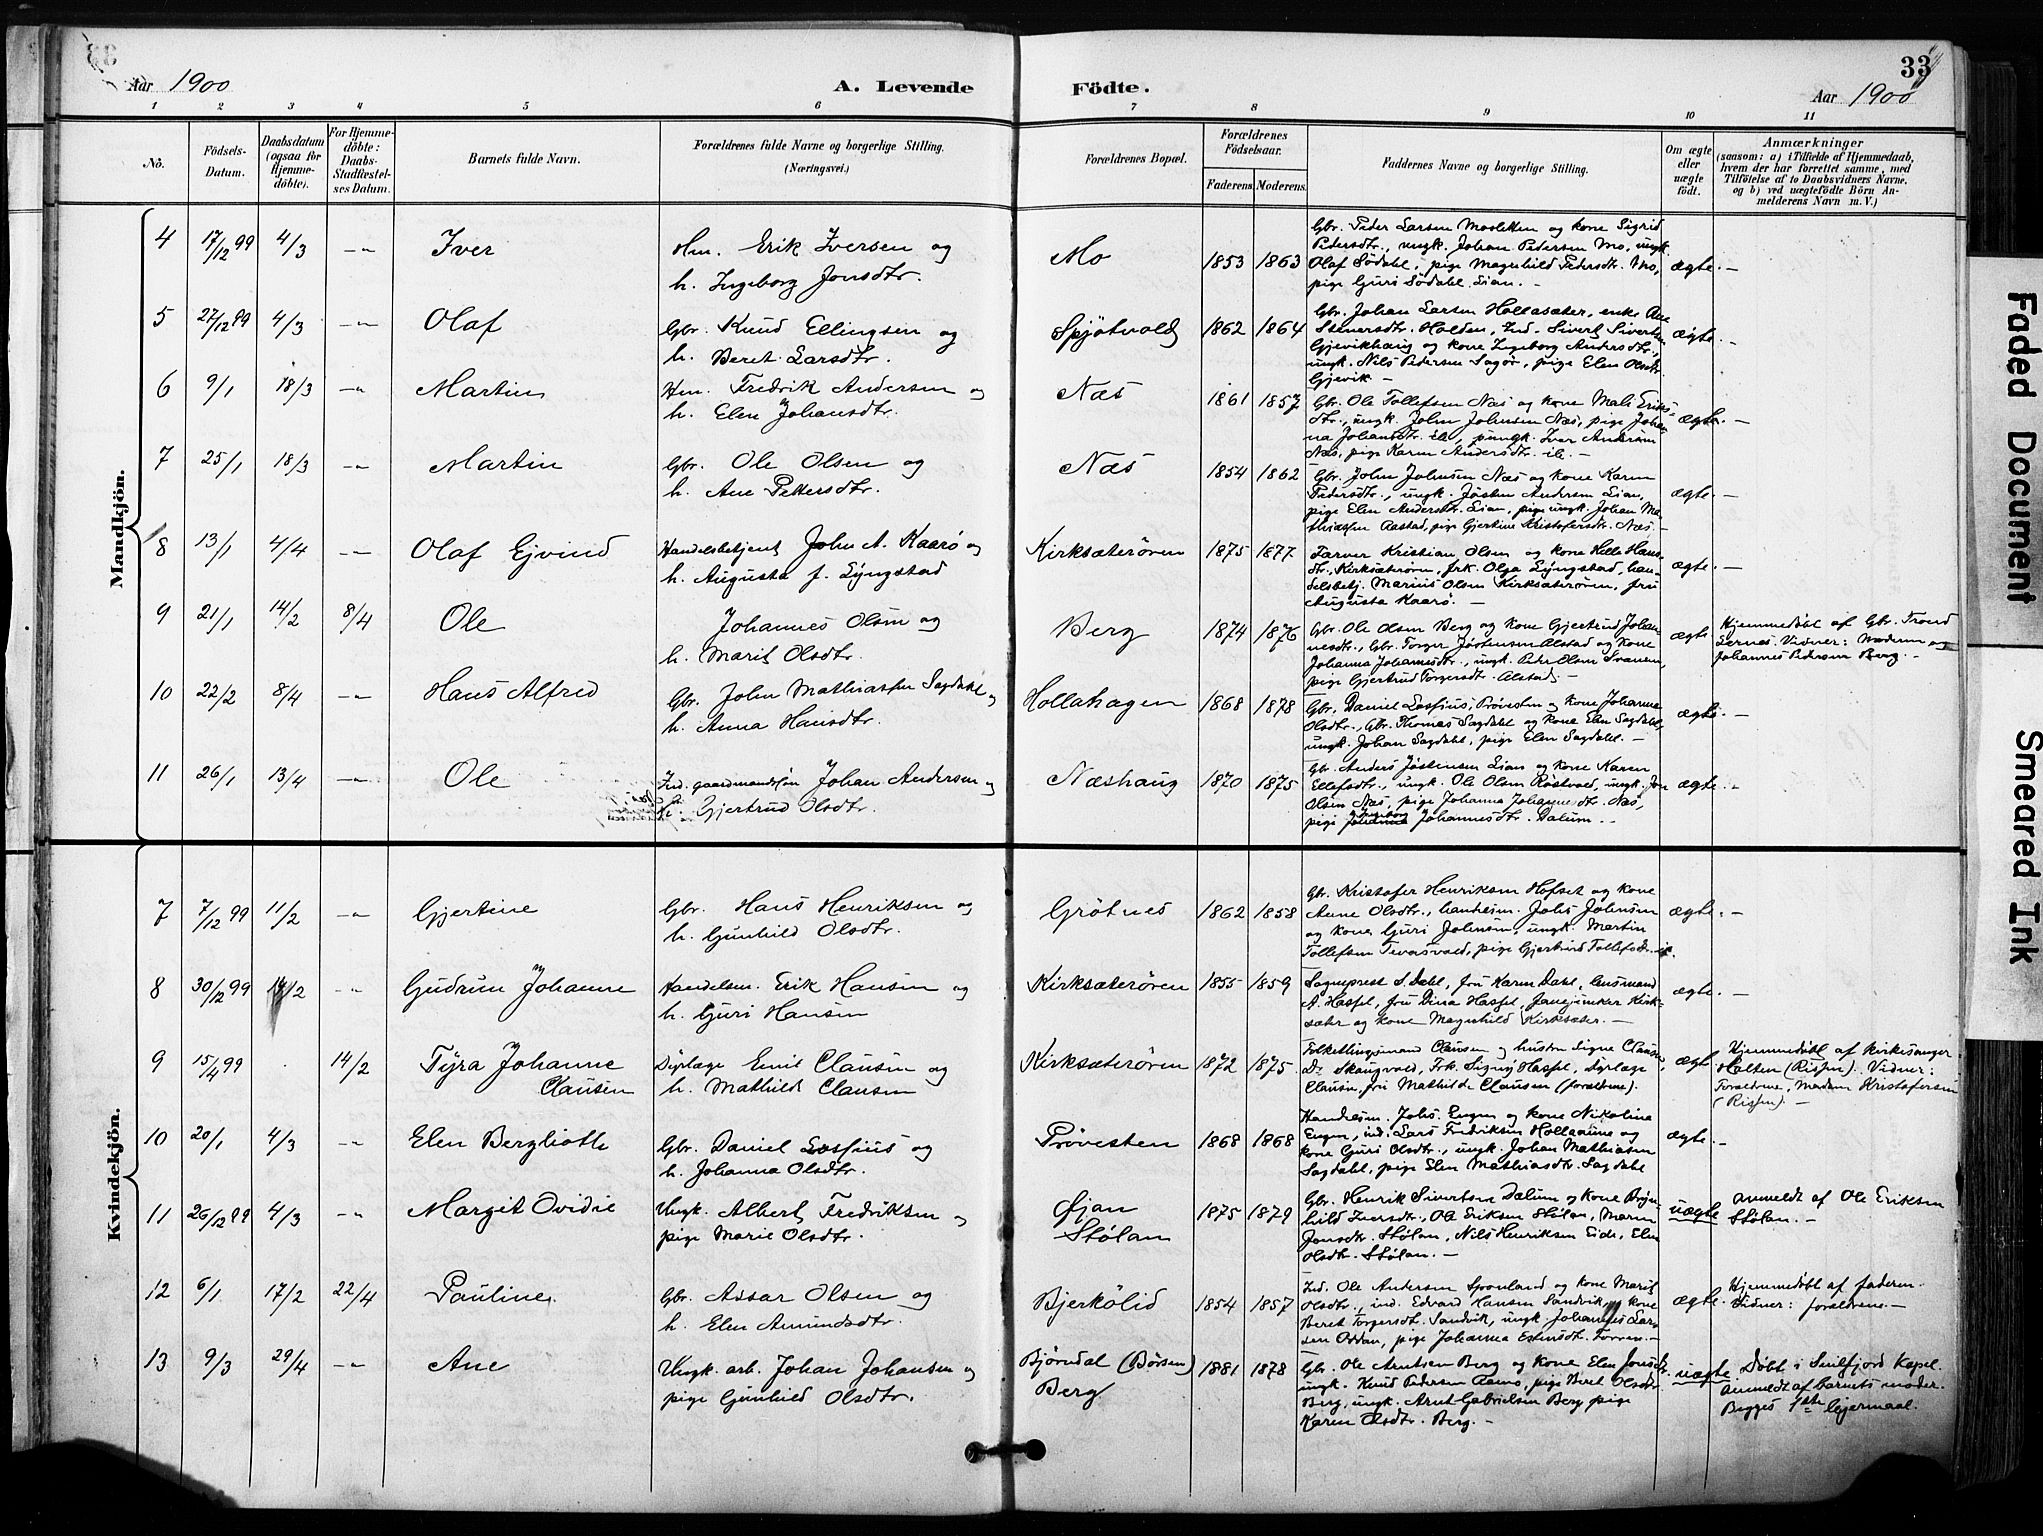 33
Aar 1900
A. Levende Födte.
Aar 1900
1 2 3 4 5 6 7 8 9 10 11
Nö.
Födsels-
Datum.
Daabsdatum
(ogsaa for
Hjemme-
döbte).
For Hjemme-
döbte:
Daabs-
Stadfæstel-
ses Datum.
Barnets fulde Navn.
Forældrenes fulde Navne og borgerlige Stilling.
(Næringsvei.)
Forældrenes Bopæl.
Forældrenes
Födselsaar.
Faderens. Moderens.
Faddernes Navne og borgerlige Stilling.
Om ægte
eller
uægte
födt.
Anmærkninger
(saasom: a) i Tilfælde af Hjemmedaab,
hvem der har forrettet samme, med
Tilföielse af to Daabsvidners Navne,
og b) ved uægtefödte Börn An-
melderens Navn m. V.)
Mandkjön.
4 17/12 99 4/3 -"- Iver
Hm. Erik Iversen og
h. Ingeborg Jonsdtr.
Mo 1853 1863
Gbr. Peder Larsen Moslette og kone Sigrid
Pedersdtr., ungk. Johan Pedersen Mo, ungk.
Olaf Södahl, pige Magnhild Pedersdtr. Mo,
pige Guri Södahl Lian. —
ægte. —
5 27/12 99 4/3 -"- Olaf
Gbr. Knud Ellingsen og
h. Beret Larsdtr.
Spjötvold 1862 1864
Gbr. Johan Larsen Hollasæter, enke Ane
Stenersdtr. Holden, Ind. Sivert Sivertsen
Gjevikhaug og kone Ingeborg Andersdtr.,
ungk. Nils Pedersen Sagör, pige Elen Olsdtr.
Gjevik. —
ægte. —
6 9/1 18/3 -"- Martin
Hm. Fredrik Andersen og
h. Elen Johansdtr.
Næs 1861 1857
Gbr. Ole Tollefsen Næs og kone Mali Eriks-
dtr., ungk. John Johnsen Næs, pige Johan-
na Johansdtr. ib., ungk. Iver Andersen
Næs, pige Karen Andersdtr. ib. —
ægte. —
7 25/1 18/3 -"- Martin
Gbr. Ole Olsen og
h. Ane Pettersdtr.
Næs 1854 1862
Gbr. John Johnsen Næs og kone Karen
Pedersdtr., ungk. Jösten Andersen Lian,
pige Elen Andersdtr. Lian, ungk. Johan Ma-
thiassen Aastad, pige Gjertine Kristofersdtr. Næs. —
ægte. —
8 13/1 4/4 -"- Olaf Ejvind
Handelsbetjent John A. Kaarö og
h. Augusta f. Lyngstad
Kirksæterören 1875 1877.
Farver Kristian Olsen og kone Helle Hans-
dtr., Kirksæterören, frk. Olga Lyngstad, han-
delsbetj. Marius Olsen Kirksæterören, fru
Augusta Kaarö. —
ægte. —
9 21/1 14/2 8/4 Ole
Johannes Olsen og
h. Marit Olsdtr.
Berg 1874 1876
Gbr. Ole Olsen Berg og kone Gjertrud Johan-
nesdtr., Gbr. Torger Jöstensen Alstad og kone
Johanna Johannesdtr., ungk. Peter Olsen Svanem,
pige Gjertrud Torgersdtr. Alstad. —
ægte.
Hjemmedöbt af Gbr. Trond
Lernes. Vidner: Moderen og
Johannes Pedersen Berg. —
10 22/2 8/4 -"- Hans Alfred
Gbr. John Mathiassen Sagdahl og
h. Anna Hansdtr.
Hollahagen 1868 1878
Gbr. Daniel Lossius, Prövesten og kone Johanna
Olsdtr., Gbr. Thomas Sagdahl og kone Elen Sagdahl,
ungk. Johan Sagdahl, pige Elen Sagdahl. —
ægte. —
11 26/1 13/4 -"- Ole
Ind. gaardmandssön Johan Andersen og
h. Gjertrud Olsdtr.
Næshaug 1870 1875
Gbr. Anders Jöstensen Lian og kone Karen
Ellefsdtr., ungk. Ole Olsen Röstvold, ungk. Jon
Olsen Næs, pige Johanna Johannesdtr. Næs,
pige Ingeborg Johannesdtr. Dalum. —
ægte. —
Kvindekjön.
7 7/12 99 11/2 -"- Gjertine
Gbr. Hans Henriksen og
h. Gunhild Olsdtr.
Grötnes 1862 1858
Gbr. Kristofer Henriksen Hofset og kone
Anne Olsdtr., handelsm. Johs Johnsen
og kone Guri Johnsen, ungk. Martin
Tollefsen, pige Gjertrud Tollefsdtr. ib.
ægte. —
8 30/12 99 11/2 -"- Gudrun Johanne
Handelsm. Erik Hansen og
h. Guri Hansen
Kirksæterören 1855 1859
Sogneprest S. Dahl, fru Karen Dahl, lensmand
A. Hassel, fru Dina Hassel, Fanejunker Kirk-
sæter og kone Magnhild Kirksæter. —
ægte. —
9 15/4 99 14/2 Tyra Johanne
Clausen
Dyrlæge Emil Clausen og
h. Mathilde Clausen
Kirksæterören 1872 1875.
Folketingsmand Clausen og hustru Signe Clausen,
Dr Skaugvold, Frk. Signy Hassel, dyrlæge
Clausen, fru Mathilde Clausen (forældrene).
ægte
Hjemmedöbt af kirkesanger
Halten (Rissen). Vidner:
Forældrene, Madam Kristofersen
(Rissen). —
10 20/1 4/3 -"- Elen Bergliotte
Gbr. Daniel Lossius og
h. Johanna Olsdtr.
Prövesten 1868 1868
Handelsm. Johs. Engen og kone Nikolina
Engen, ind. Lars Fredriksen Hollaaune og
kone Guri Olsdtr., ungk. Johan Mathiasen
Sagdahl, pige Elen Mathiasdtr. Sagdahl
ægte. —
11 26/12 99 4/3 -"- Margit Ovidie
Ungk. Albert Fredriksen og
pige Marie Olsdtr.
Øjan
Stölan
1875 1879
Gbr. Henrik Sivertsen Dalum og kone Bryn-
hild Iversdtr., Ole Eriksen Stölan, Maren
Jonsdtr. Stölan, Nils Henriksen Eide, Elen
Olsdtr. Stölan. —
uægte
Anmeldt af Ole Eriksen
Stölan. —
12 6/1 17/2 22/4 Pauline
Gbr. Assar Olsen og
h. Elen Amundsdtr.
Bjerkölid 1854 1857
Ind. Ole Andersen Sponland og kone Marit
Olsdtr., ind. Edvard Hansen Sandvik, kone
Beret Torgersdtr. Sandvik, ungk. Johannes Lar-
sen Oddan, pige Johanna Estensdtr. Forren. —
ægte.
Hjemmedöbt af faderen.
Vidner: forældrene. —
13 9/3 29/4 -"- Ane
Ungk. arb. Johan Johansen og
pige Gunhild Olsdtr.
Bjørndal (Börsen)
Berg
1881 1878
Gbr. Ole Arntsen Berg og kone Elen Jonsdtr.
ungk. Knud Pedersen Aamo, pige Beret Olsdtr.
Berg, ungk. Arnt Gabrielsen Berg, pige
Karen Olsdtr. Berg. —
uægte
Döbt i Snilfjord Kapel.
Anmeldt af barnets moder.
Begges 1ste lejermaal.
Faded Document
Smeared Ink